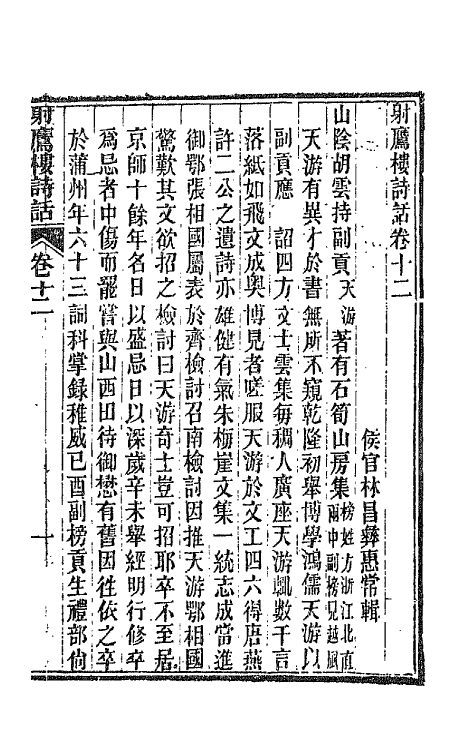 射鷹樓詩話卷十二
侯官林昌彝惠常輯
山陰胡雲持副貢天游著有石笥山房集榜姓方浙江北直兩中副榜見越風
天游有異才於書無所不窺乾隆初舉博學鴻儒天游以
副貢應　詔四方文士雲集每稠人廣座天游輒數千言
落紙如飛文成奧博見者嗟服天游於文工四六得唐燕
許二公之遺詩亦雄健有氣朱梅崖文集一統志成當進
御鄂張相國屬表於齊檢討召南檢討因推天游鄂相國
驚歎其文欲招之檢討曰天游奇士豈可招耶卒不至居
京師十餘年名日以盛忌日以深歲辛未舉經明行修卒
爲忌者中傷而罷嘗與山西田待御懋有舊因往依之卒
於蒲州年六十三詞科掌錄稚威己酉副榜貢生禮部尙
射鷹樓詩話
卷十二
一